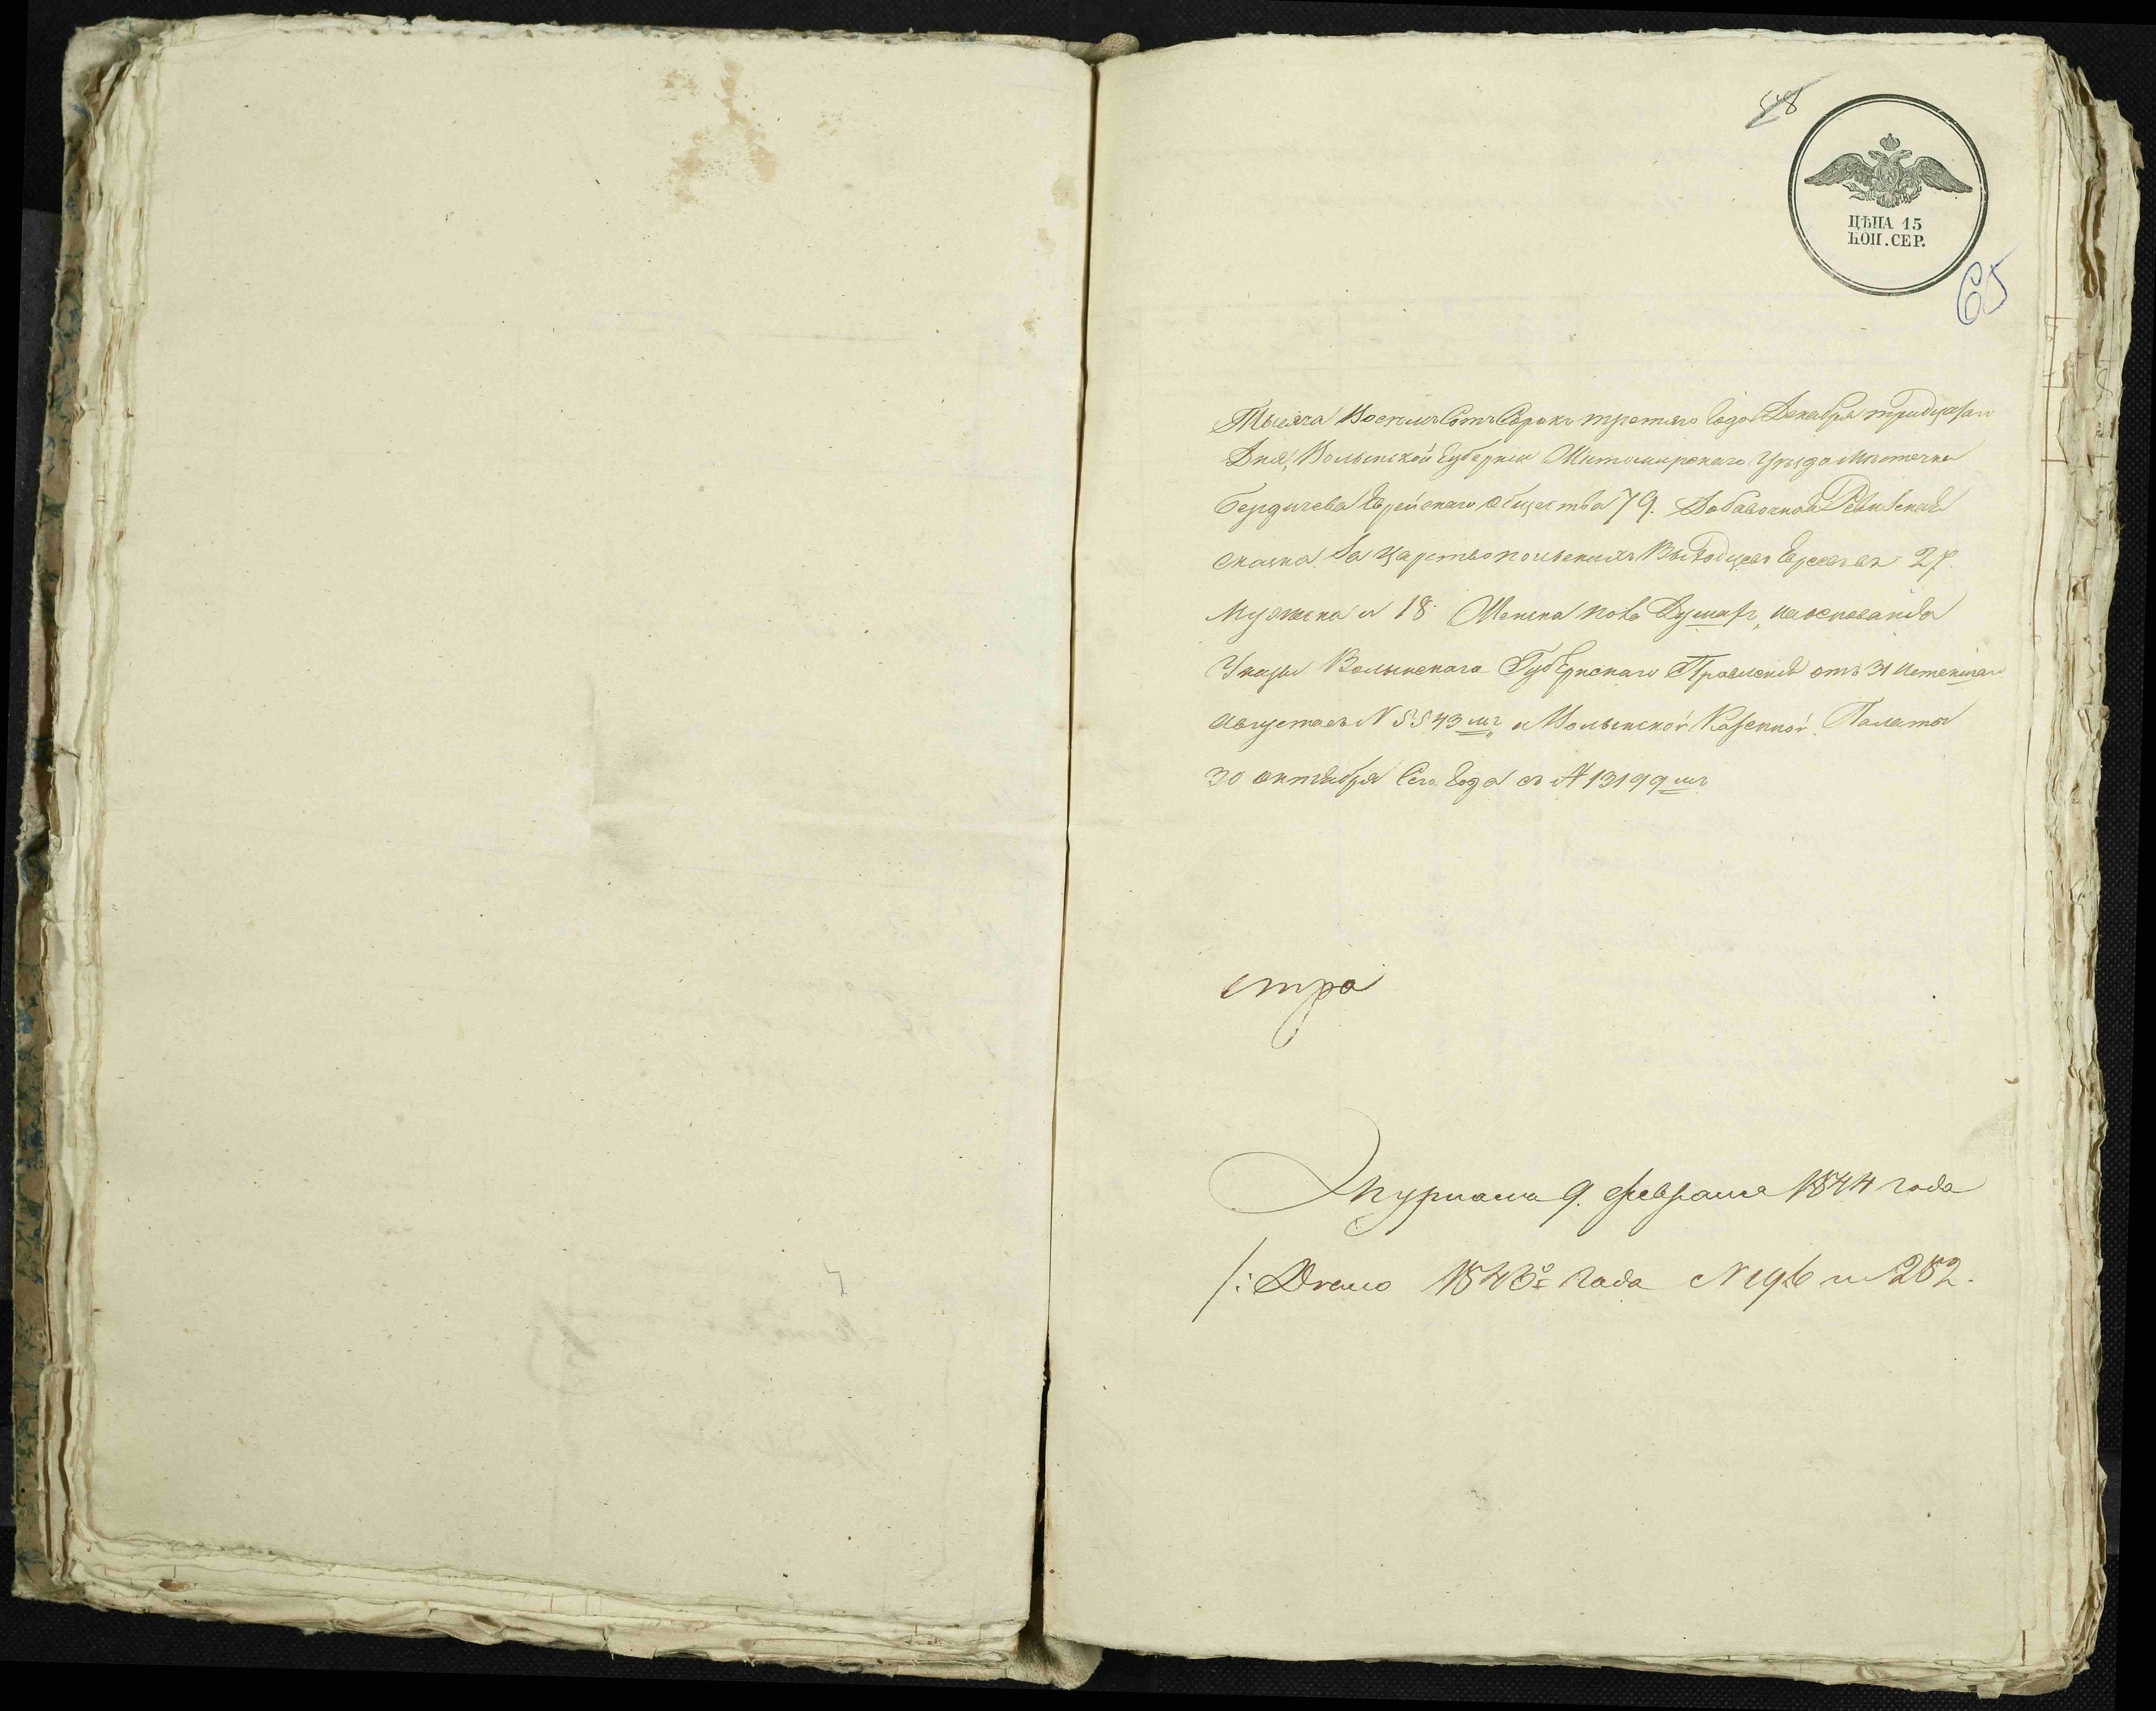 58
ЦѢНА 15
КОП. СЕР.
65
Тысяча Восемь Сотъ Сорокъ третяго Года Декабря тридцатаго
Дня, Волынской Губерніи Житомирскаго Уѣзда Мѣстечка
Бердичева Еврейскаго Общества 79. Добавочная Ревизская
сказка За Царство польскихъ Выходцевъ Евреевъ въ 27.
Мужеска и 18 Женска пола Душахъ, на основаніи
Указа Волынскаго Губернскаго Правленія отъ 31 истекшаго
Августа съ N 5543мъ и Волынской Казенной Палаты
30 октября Сего Года съ N 13199мъ
стра
Журналъ 9. февраля 1844 года
/: Дѣло 1843го Года N 196 и 282.